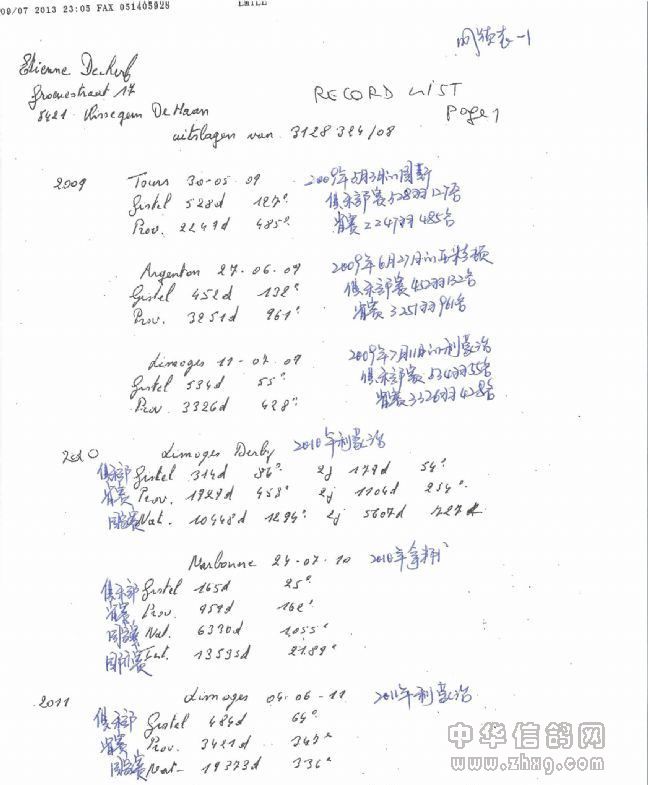 09/07 2013 23:05 FAX 051405928 EMILE
-1
Etienne
Groenestraat 17
8421 Vlissegem De Haan
RECORD LIST
Page 1
uitslagen van 3128324/08
2009 Tours 30-05-09
Gistel 528d 127e 俱乐部赛528羽127名
Prov. 2247d 485e 省赛2247羽485名
Argenton 27.06.09 2009年6月27日
Gistel 452d 132e 俱乐部赛452羽132名
Prov. 3251d 961e 省赛3251羽961名
Limoges 11-07.09 2009年7月11日的利蒙治
Gistel 534d 55e 俱乐部赛534羽55名
Prov. 3326d 428e 省赛3326羽428名
2010 Limoges Derby 2010年利蒙治
俱乐部 Gistel 314d 86e 2j 179d 54e
省赛 Prov. 1929d 453e 2j 1104d 254e
国家赛 Nat. 10448d 1294e 2j 5607d 727e
Narbonne 24-07.10 2010年
俱乐部 Gistel 165d 25e
省赛 Prov. 959d 162e
国家赛 Nat. 6330d 1055e
国际赛 Int. 13535d 2189e
2011 Limoges 04-06-11 2011年利蒙治
俱乐部 Gistel 484d 64e
省赛 Prov. 3421d
国家赛 Nat- 19373d 336e
中华信鸽网
www.zhxg.com